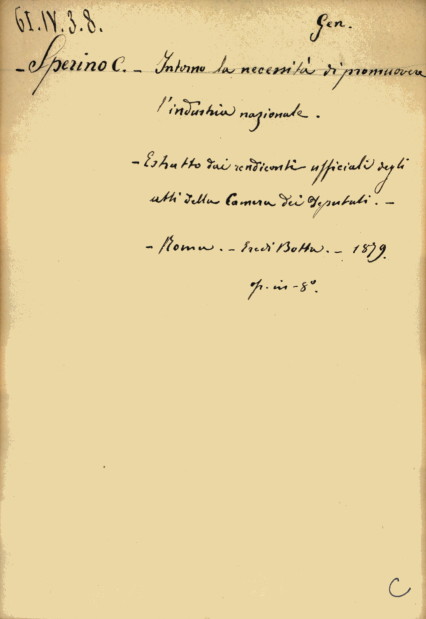 61.IV.3.8.
Gen.
- Sperino C. - Intorno la necessità di promuovere
l'industria nazionale.
- Estratto dai rendiconti ufficiali degli
atti della Camera dei Deputati. -
- Roma. - Eredi Botta. - 1879.
op. in-8º.
C